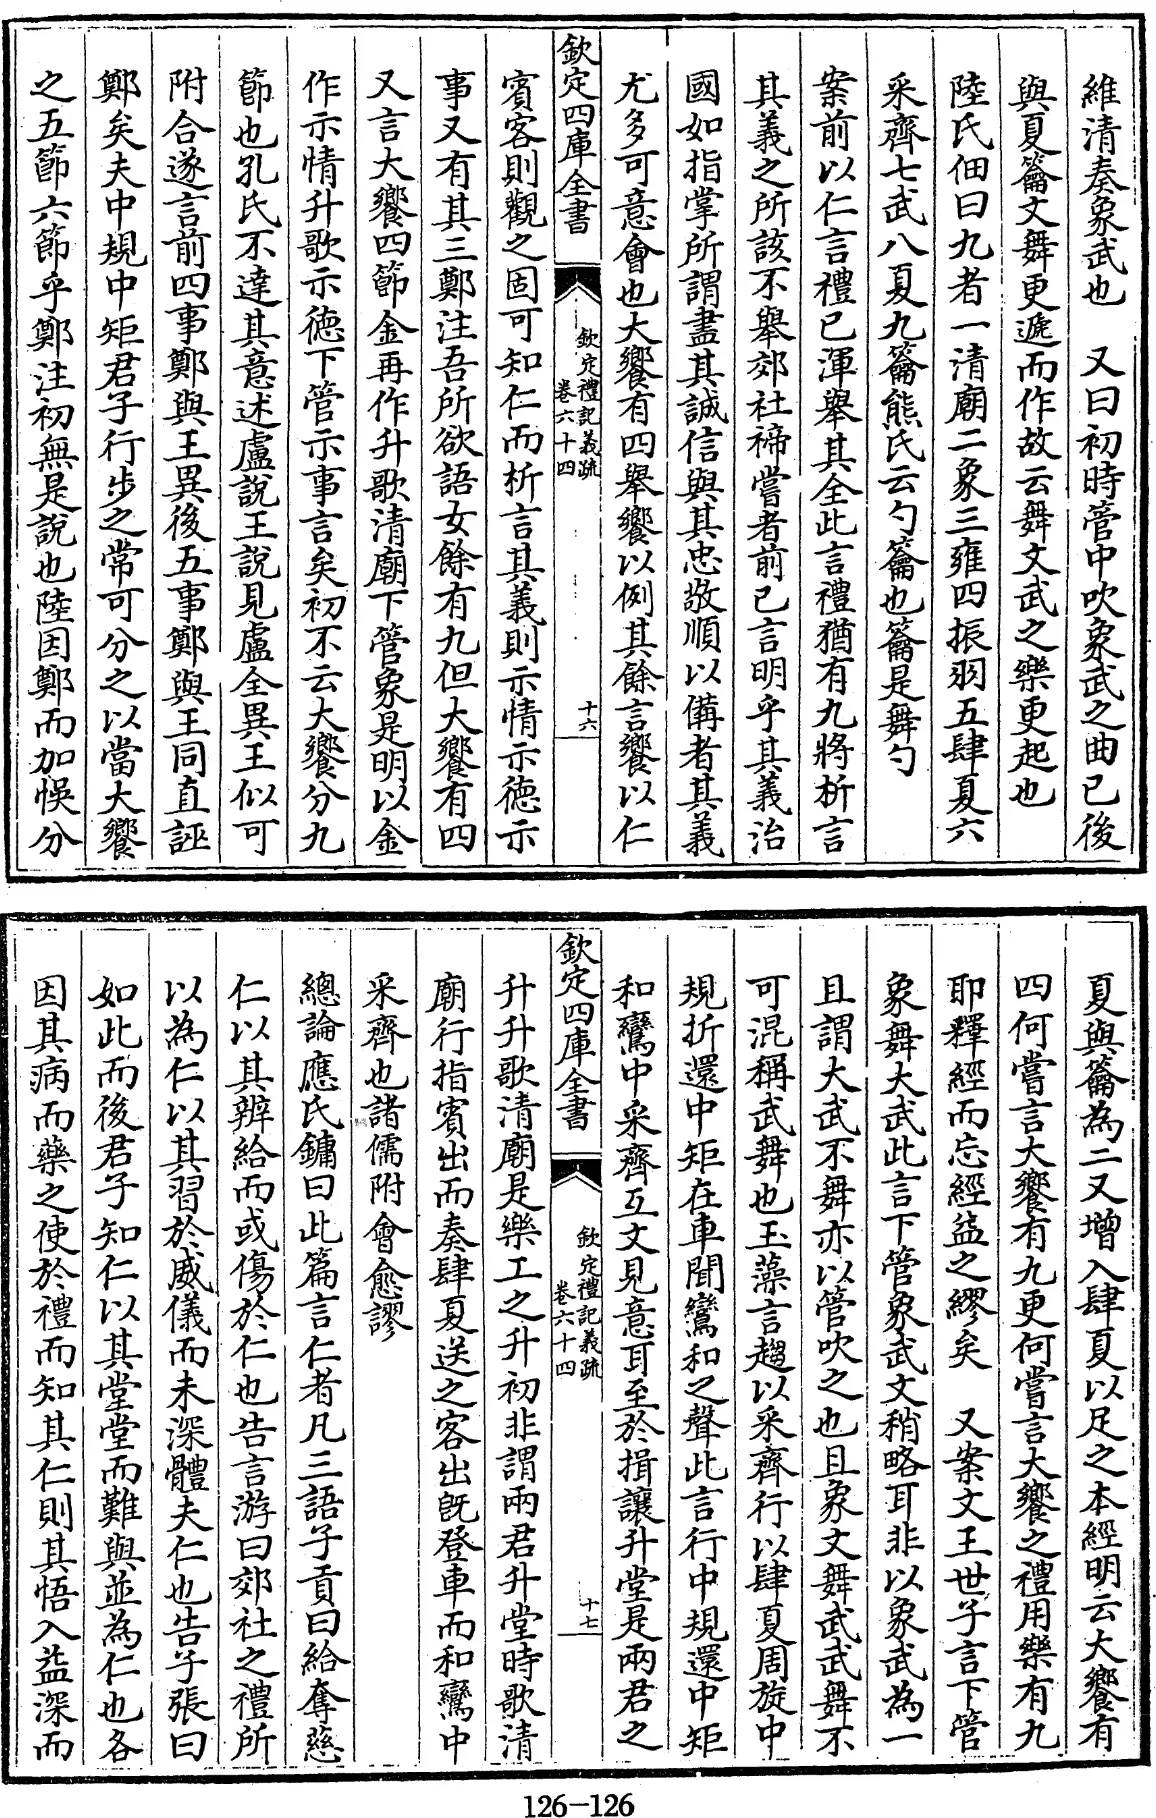 維清奏象武也　又曰初時管中吹象武之曲已後
與夏籥文舞更遞而作故云舞文武之樂更起也
陸氏佃曰九者一清廟二象三雍四振羽五肆夏六
采齊七武八夏九籥熊氏云勺籥也籥是舞勺
案前以仁言禮已渾舉其全此言禮猶有九將析言
其義之所該不舉郊社禘嘗者前已言明乎其義治
國如指掌所謂盡其誠信與其忠敬順以備者其義
尤多可意會也大饗有四舉饗以例其餘言饗以仁
欽定四庫全書
欽定禮記義疏
卷六十四
十六
賓客則觀之固可知仁而析言其義則示情示德示
事又有其三鄭注吾所欲語女餘有九但大饗有四
又言大饗四節金再作升歌清廟下管象是明以金
作示情升歌示德下管示事言矣初不云大饗分九
節也孔氏不達其意述盧說王說見盧全異王似可
附合遂言前四事鄭與王異後五事鄭與王同直誣
鄭矣夫中規中矩君子行步之常可分之以當大饗
之五節六節乎鄭注初無是說也陸因鄭而加悞分
夏與籥為二又增入肆夏以足之本經明云大饗有
四何嘗言大饗有九更何嘗言大饗之禮用樂有九
耶釋經而忘經益之繆矣　又案文王世子言下管
象舞大武此言下管象武文稍略耳非以象武為一
且謂大武不舞亦以管吹之也且象文舞武武舞不
可混稱武舞也玉藻言趨以采齊行以肆夏周旋中
規折還中矩在車聞鸞和之聲此言行中規還中矩
和鸞中采齊互文見意耳至於揖讓升堂是兩君之
欽定四庫全書
欽定禮記義疏
卷六十四
十七
升升歌清廟是樂工之升初非謂兩君升堂時歌清
廟行指賓出而奏肆夏送之客出既登車而和鸞中
采齊也諸儒附會愈謬
總論應氏鏞曰此篇言仁者凡三語子貢曰給奪慈
仁以其辨給而或傷於仁也告言游曰郊社之禮所
以為仁以其習於威儀而未深體夫仁也告子張曰
如此而後君子知仁以其堂堂而難與並為仁也各
因其病而藥之使於禮而知其仁則其悟入益深而
126-126